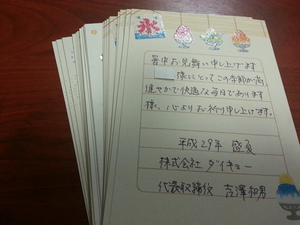 氷
暑中お見舞い申し上げます
様にとってこの季節が尚
健やかで快適な毎日であります
様、心よりお祈り申し上げます。
平成29年 盛夏
株式会社 ダイキョー
代表取締役 吉澤和男